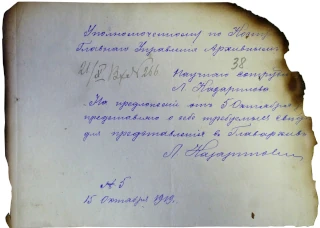 Уполномоченному по
Главного Управления Архивным
21/X 38
Научного сотруд
Л Назаритова
На предложение от 5 Октября
представляю о себе требуемые свед
для представления в Главархив
Л Назаритова
15 Октября 1919.